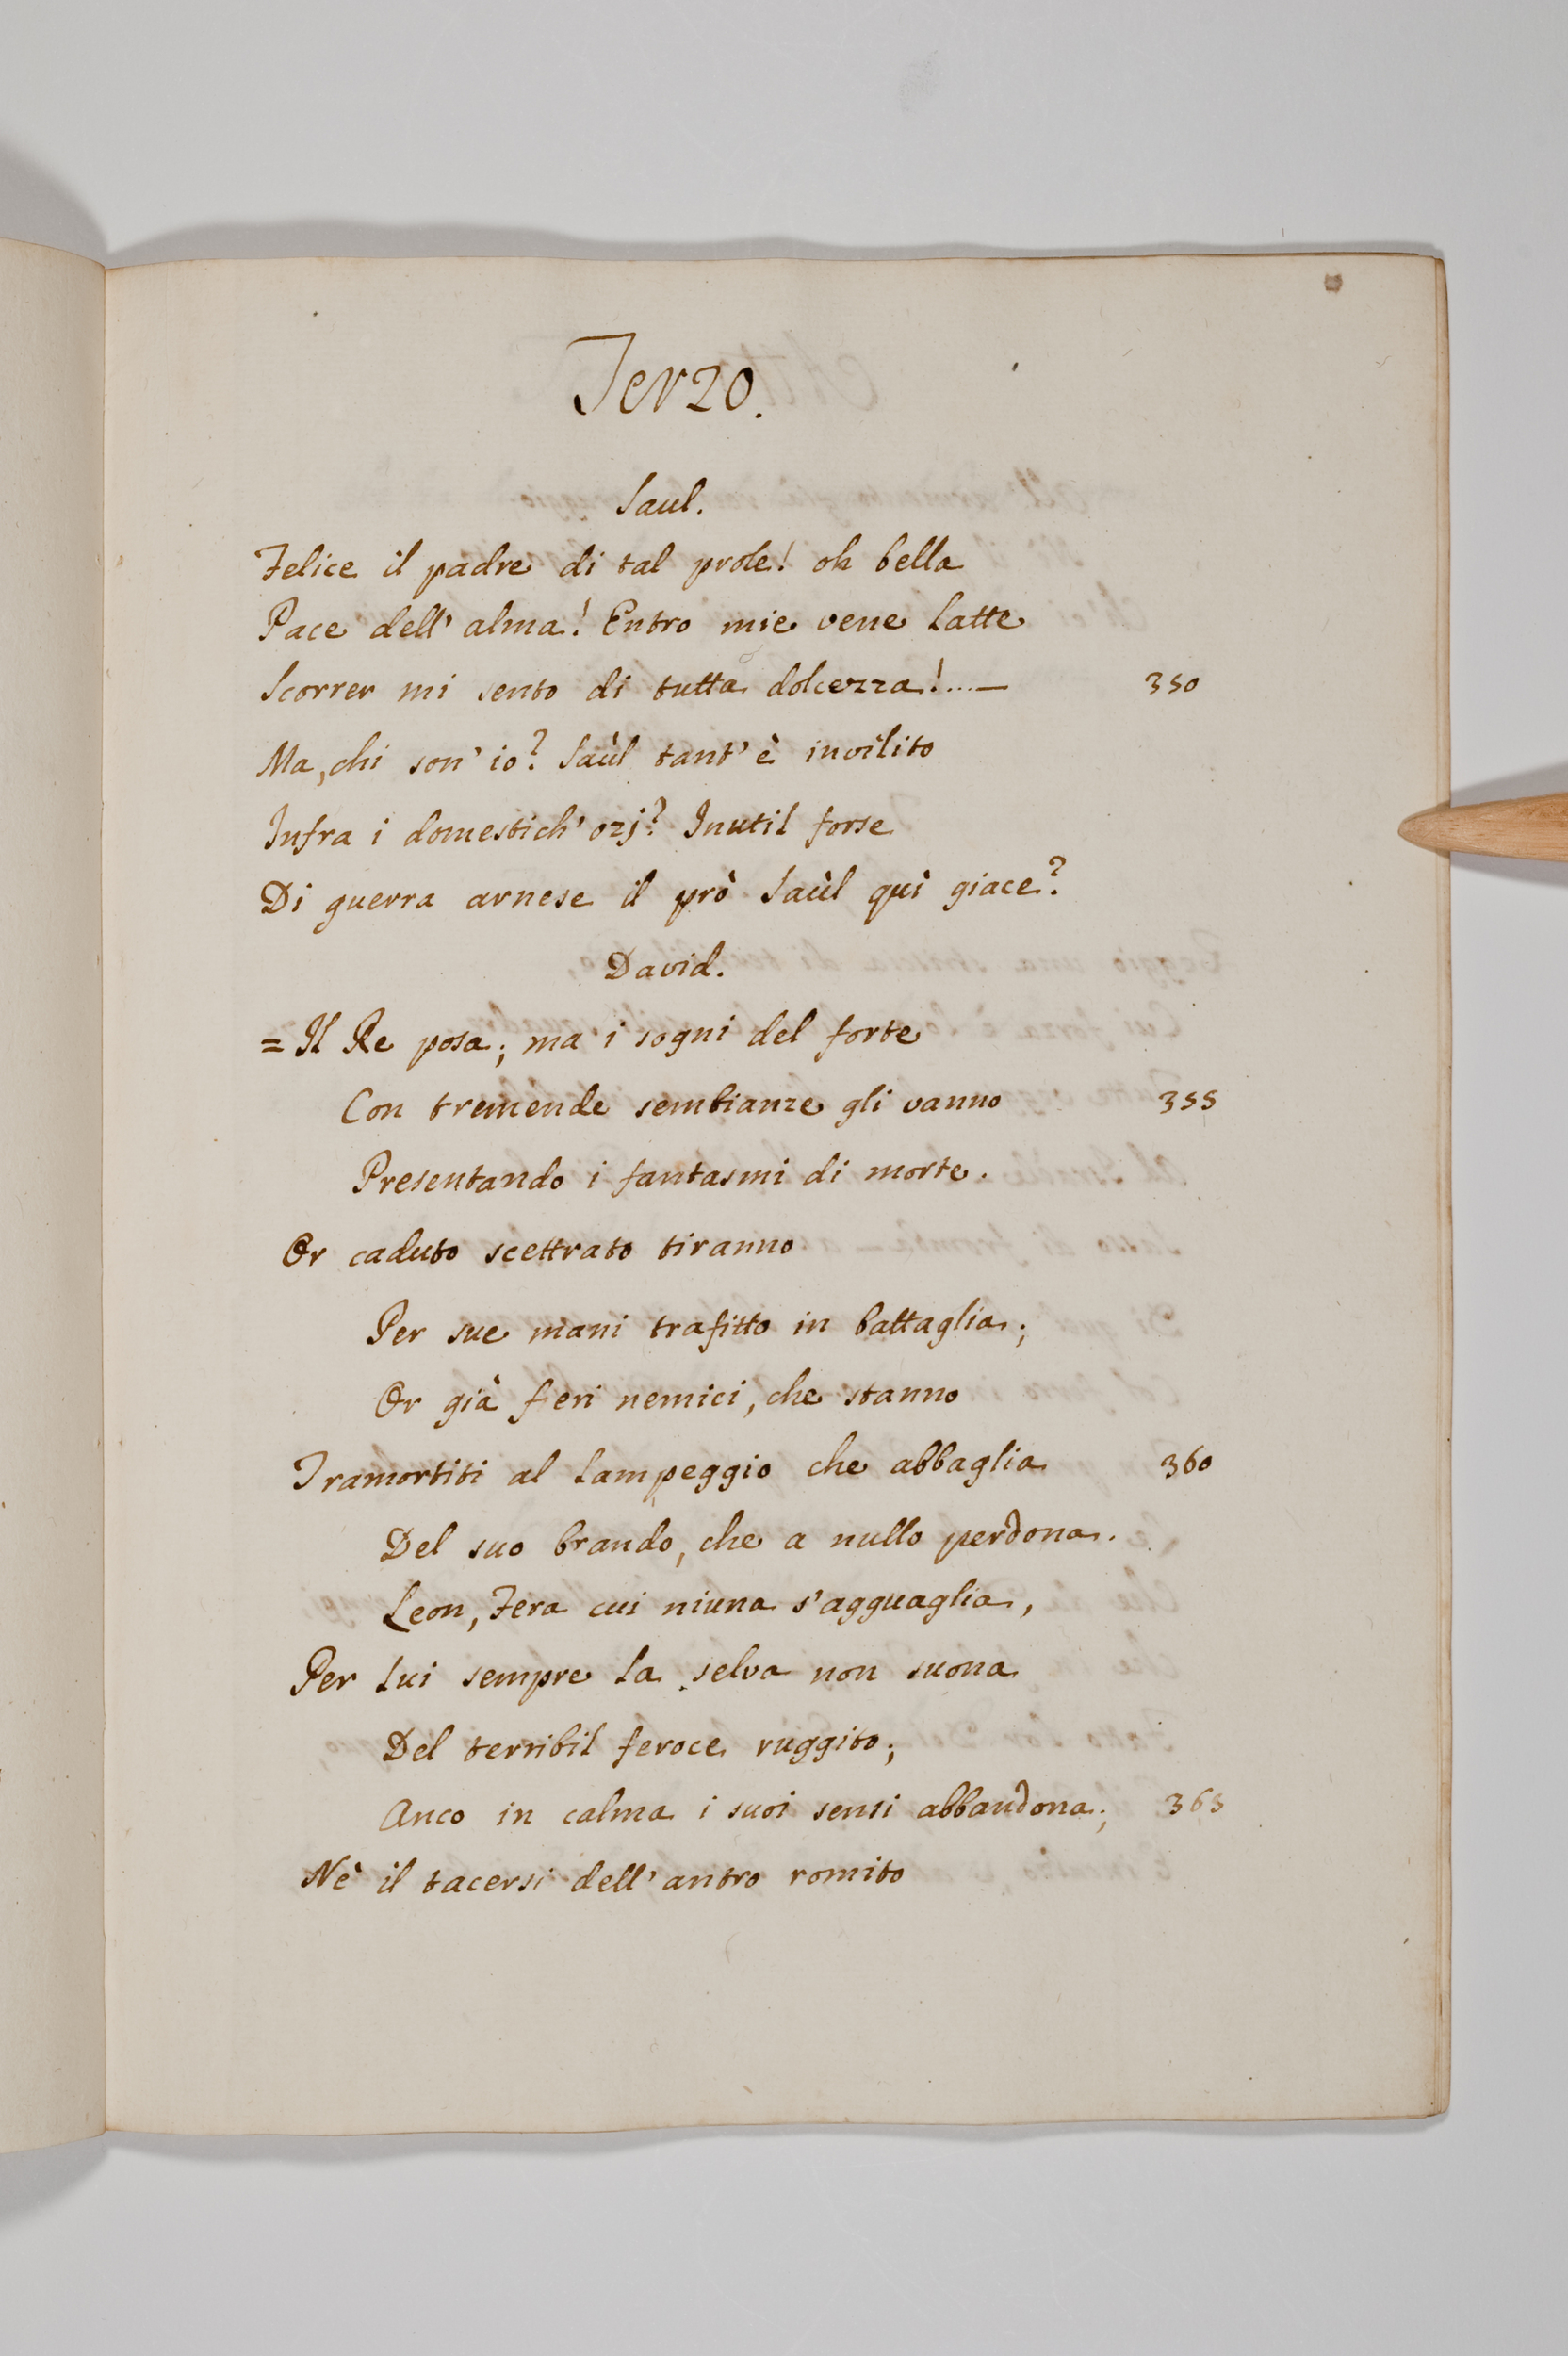 Terzo.
Saul.
Felice il padre di tal prole! oh bella
Pace dell' alma! Entro mie vene latte
Scorrer mi sento di tutta dolcezza!....— 350
Ma, chi son' io? Saùl tant' è invilito
Infra i domestich' ozj? Inutil forse
Di guerra arnese il prò Saùl quì giace?
David.
= Il Re posa; ma i sogni del forte
Con tremende sembianze gli vanno 355
Presentando i fantasmi di morte.
Or caduto scettrato tiranno
Per sue mani trafitto in battaglia;
Or già fieri nemici, che stanno
Tramortiti al lampeggio che abbaglia 360
Del suo brando, che a nullo perdona.
Leon, Fera cui niuna s'agguaglia,
Per lui sempre la selva non suona
Del terribil feroce ruggito;
Anco in calma i suoi sensi abbandona; 365
Nè il tacersi dell'antro romito